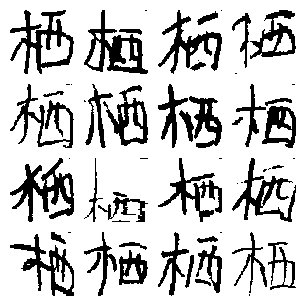 栖栖栖栖
栖栖栖栖
栖栖栖栖
栖栖栖栖